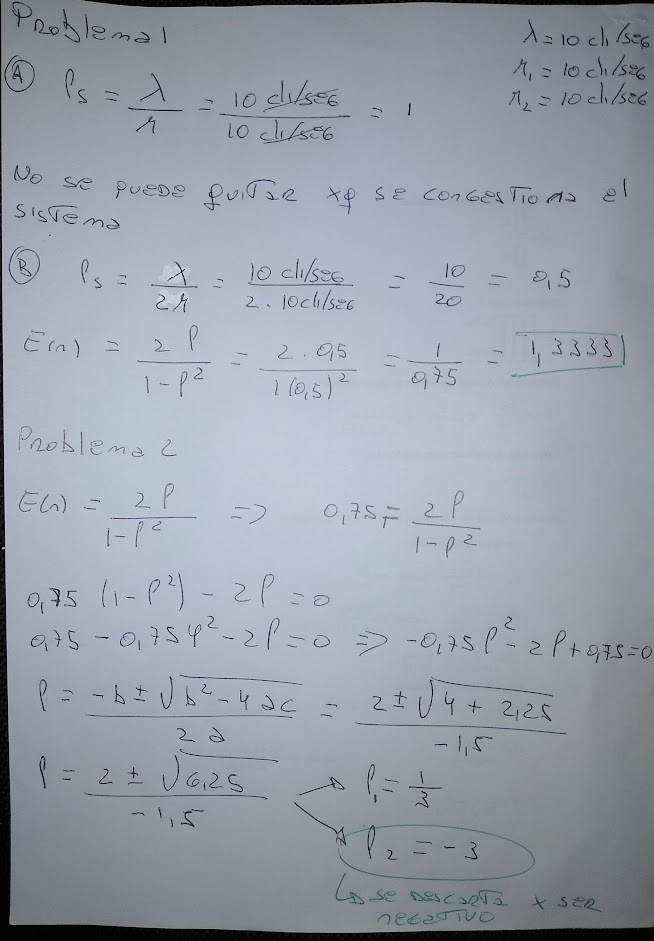 Problema 1
λ = 10 cli/seg
μ₁ = 10 cli/seg
μ₂ = 10 cli/seg
(A) ρs = λ/μ = 10 cli/seg / 10 cli/seg = 1
No se puede quitar xq se congestiona el
sistema
(B) ρs = λ/2μ = 10 cli/seg / 2 . 10 cli/seg = 10/20 = 0,5
E(n) = 2ρ/1-ρ² = 2 . 0,5/1(0,5)² = 1/0,75 = 1,3333
Problema 2
E(n) = 2ρ/1-ρ² => 0,75 = 2ρ/1-ρ²
0,75 (1-ρ²) - 2ρ = 0
0,75 - 0,75ρ² - 2ρ = 0 => -0,75ρ² - 2ρ + 0,75 = 0
ρ = -b ± √b² - 4ac / 2a = 2 ± √4 + 2,25 / -1,5
ρ = 2 ± √6,25 / -1,5
ρ₁ = 1/3
ρ₂ = -3
↳ se descarta x ser
negativo